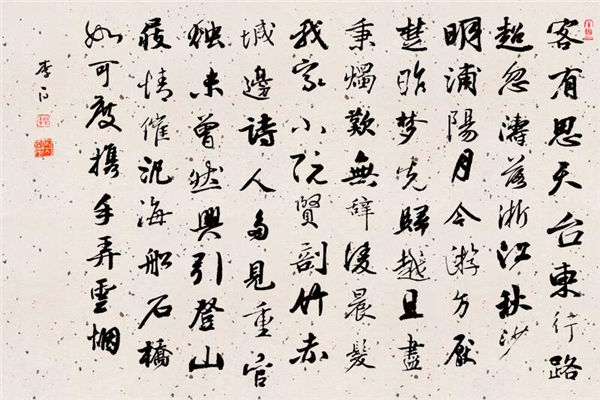 客有思天台東行路
超忽濤落浙江秋沙
明浦陽月今遊方厭
楚昨夢先歸越且盡
秉燭歡無辭凌晨發
我家小阮賢剖竹赤
城邊詩人多見重官
烛未曾然興引登山
屐情催泛海船石橋
如可度携手弄雲烟
李白